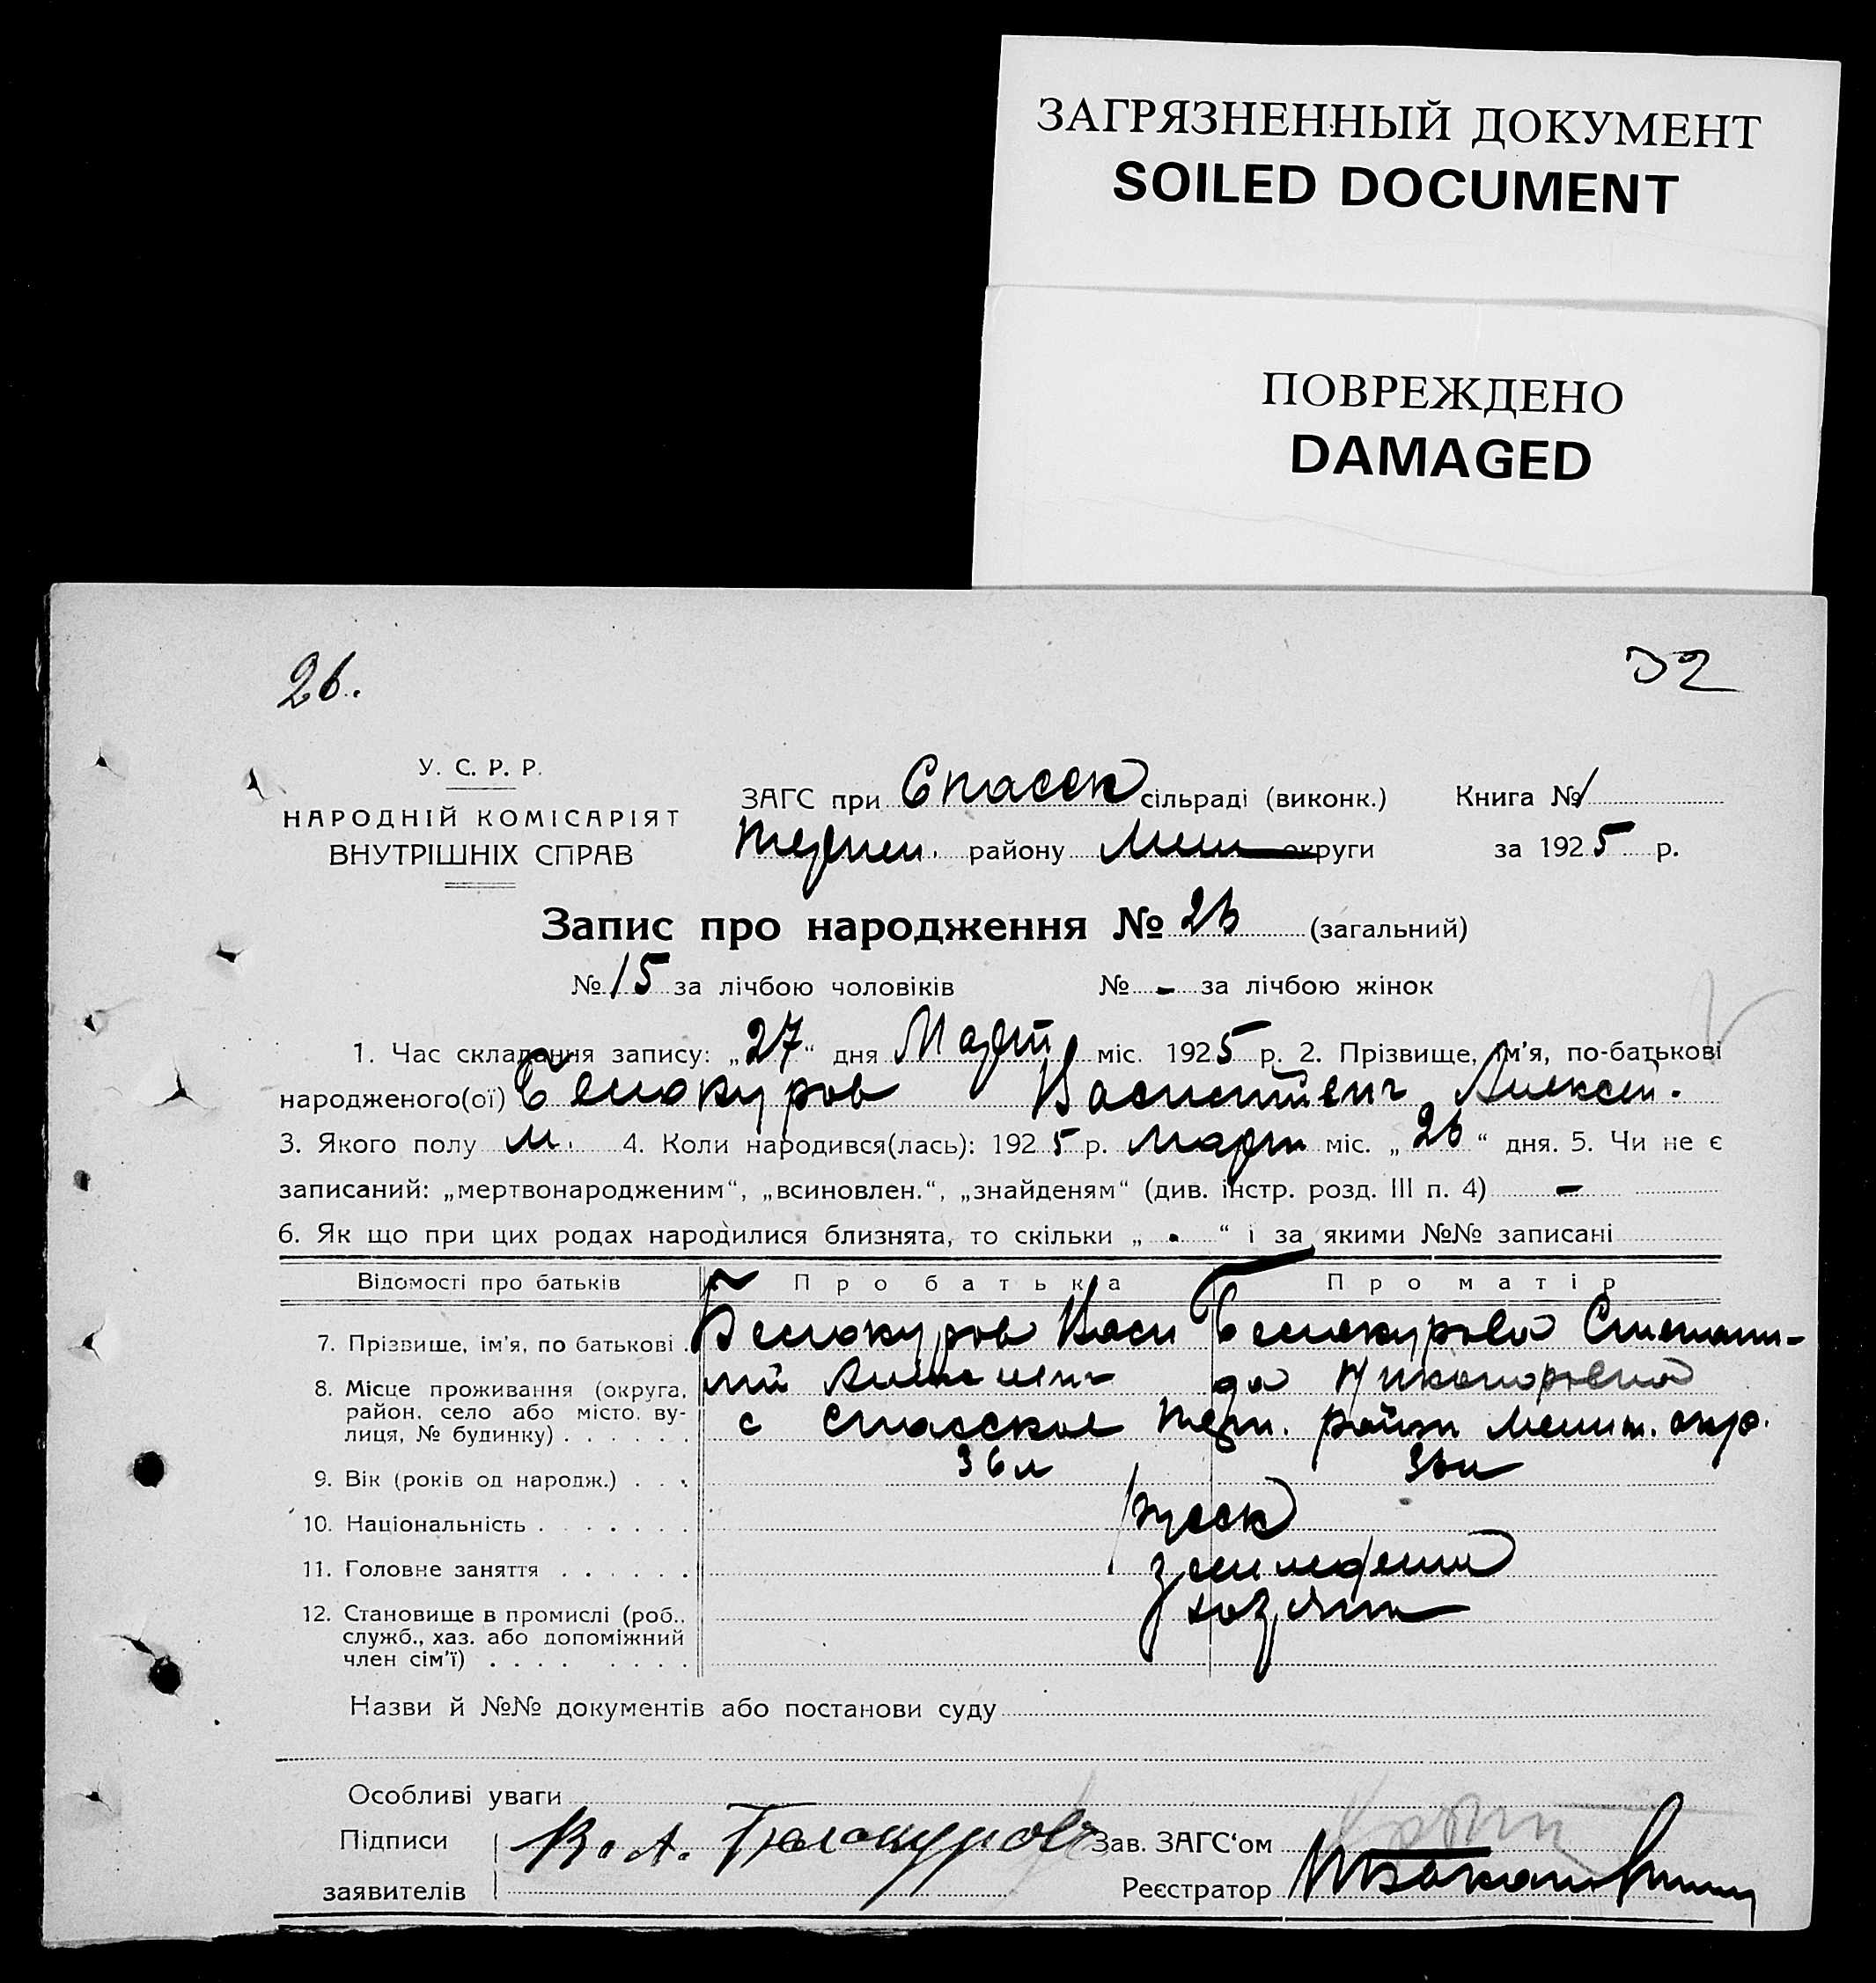 ЗАГРЯЗНЕННЫЙ ДОКУМЕНТ
SOILED DOCUMENT
ПОВРЕЖДЕНО
DAMAGED
26. 32
У. С. Р. Р.
НАРОДНІЙ КОМІСАРІЯТ
ВНУТРІШНІХ СПРАВ
ЗАГС при Спасск сільраді (виконк.) Книга № 1
району Мели округи за 1925 р.
Запис про народження № 26 (загальний)
№ 15 за лічбою чоловіків № - за лічбою жінок
1. Час складання запису: „27“ дня Март міс. 1925 р. 2. Прізвище, ім'я, по-батькові
народженого(ої) Белокуров Алексей.
3. Якого полу м. 4. Коли народився(лась): 1925 р. март міс. „26“ дня. 5. Чи не є
записаний: „мертвонародженим“, „всиновлен.“, „знайденям“ (див. інстр. розд. III п. 4) -
6. Як що при цих родах народилися близнята, то скільки „ - “ і за якими №№ записані
Відомості про батьків Про батька Про матір
7. Прізвище, ім'я, по батькові . Белокуров Васи Белокурова Степани-
8. Місце проживання (округа, лий да Никаноровна
район, село або місто, ву- с Спасское район Мелит. окр.
лиця, № будинку) . . . . . .
9. Вік (років од народж.) . . . 36 л 36 л
10. Національність . . . . . . . русск
11. Головне заняття . . . . . .
12. Становище в промислі (роб., хозяин
служб., хаз. або допоміжний
член сім'ї) . . . . . . . .
Назви й №№ документів або постанови суду
Особливі уваги
Підписи В. А. Белокуров Зав. ЗАГС'ом
заявителів Реєстратор